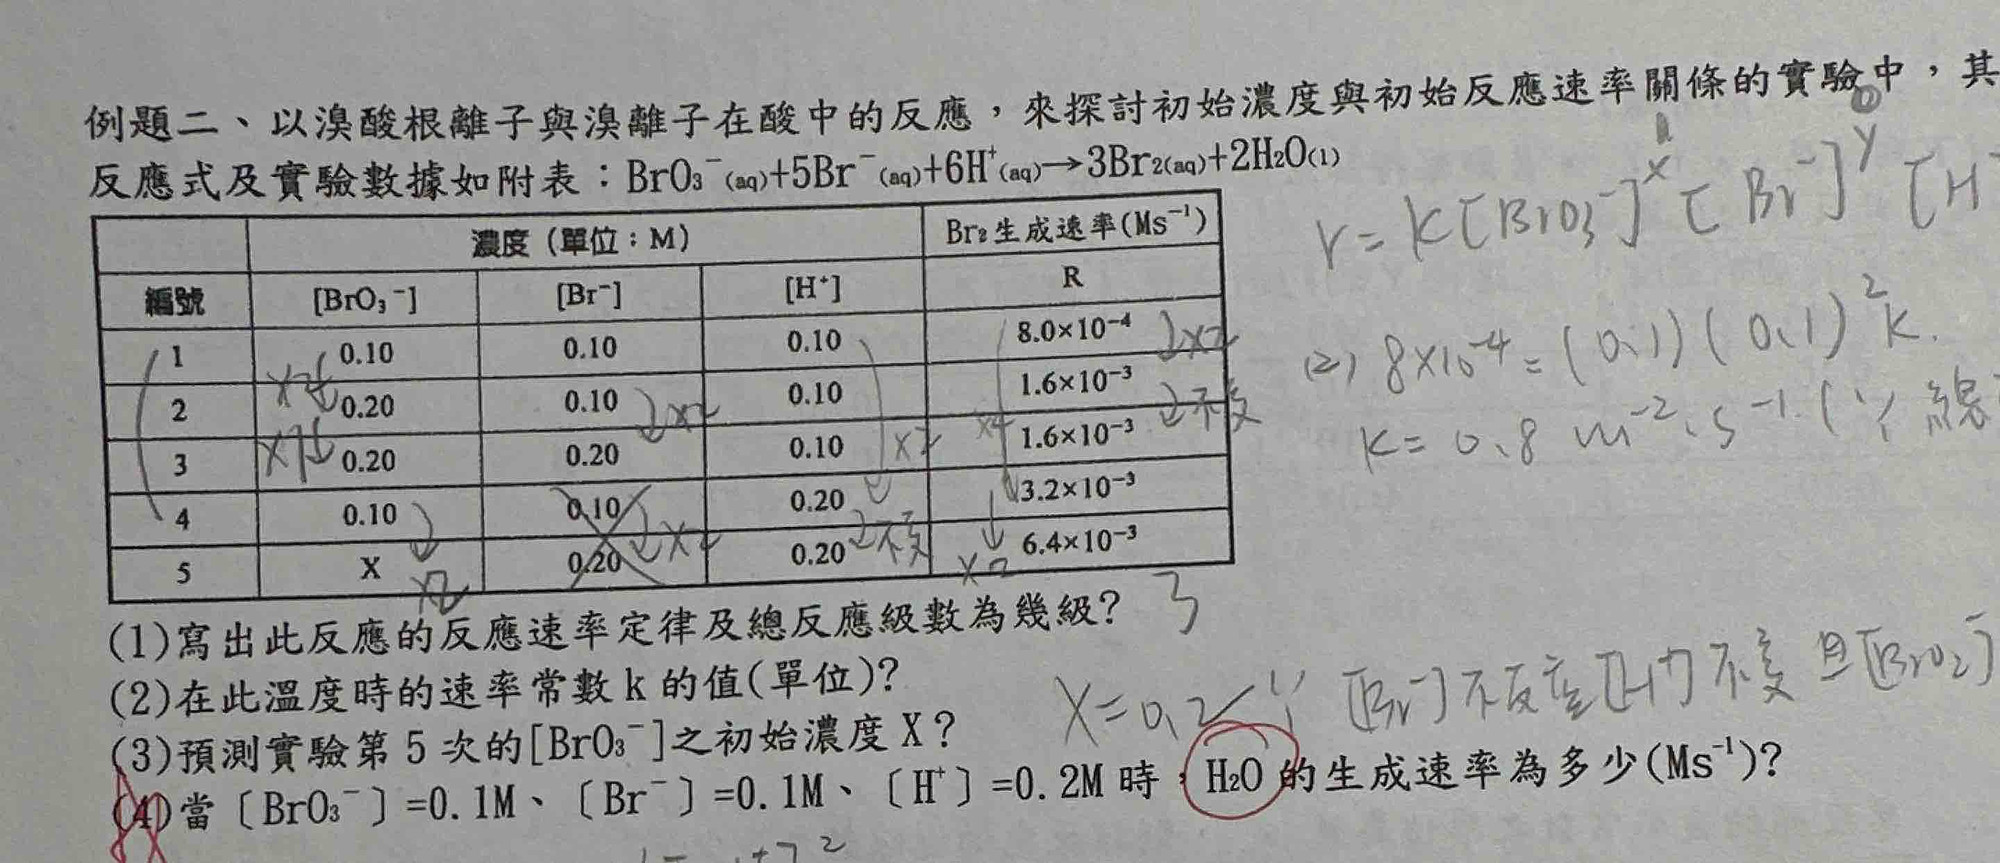 例題二、以溴酸根離子與溴離子在酸中的反應，來探討初始濃度與初始反應速率關係的實驗中，其
反應式及實驗數據如附表：BrO₃⁻(aq)+5Br⁻(aq)+6H⁺(aq)→3Br₂(aq)+2H₂O(l)
濃度（單位：M） Br₂生成速率(Ms⁻¹)
編號 [BrO₃⁻] [Br⁻] [H⁺] R
1 0.10 0.10 0.10 8.0×10⁻⁴
2 0.20 0.10 0.10 1.6×10⁻³
3 0.20 0.20 0.10 1.6×10⁻³
4 0.10 0.10 0.20 3.2×10⁻³
5 X 0.20 0.20 6.4×10⁻³
×2 ×1 ×2 ×2 不變
×2 ×2 不變 ×4 ×2
r=k[BrO₃⁻]ˣ[Br⁻]ʸ[H
(2) 8×10⁻⁴=(0.1)(0.1)²k.
k=0.8 M⁻²·S⁻¹.(∵總
(1)寫出此反應的反應速率定律及總反應級數為幾級? 3
(2)在此溫度時的速率常數k的值(單位)?
(3)預測實驗第5次的[BrO₃⁻]之初始濃度X?
X=0.2 ∵[Br⁻]不反應[H⁺]不變且[BrO₂]
(4)當〔BrO₃⁻〕=0.1M、〔Br⁻〕=0.1M、〔H⁺〕=0.2M時，H₂O的生成速率為多少(Ms⁻¹)?